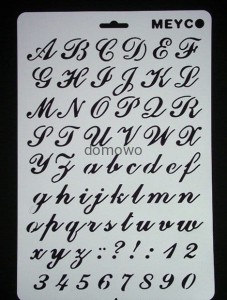 MEYCO
A B C D E F
G H I J K L
M N O P Q R
S T U V W X
Y Z a b c d e f
domowo
g h i j k l m n
o p q r s t u v w
x y z : ? ! : 1 2
3 4 5 6 7 8 9 0